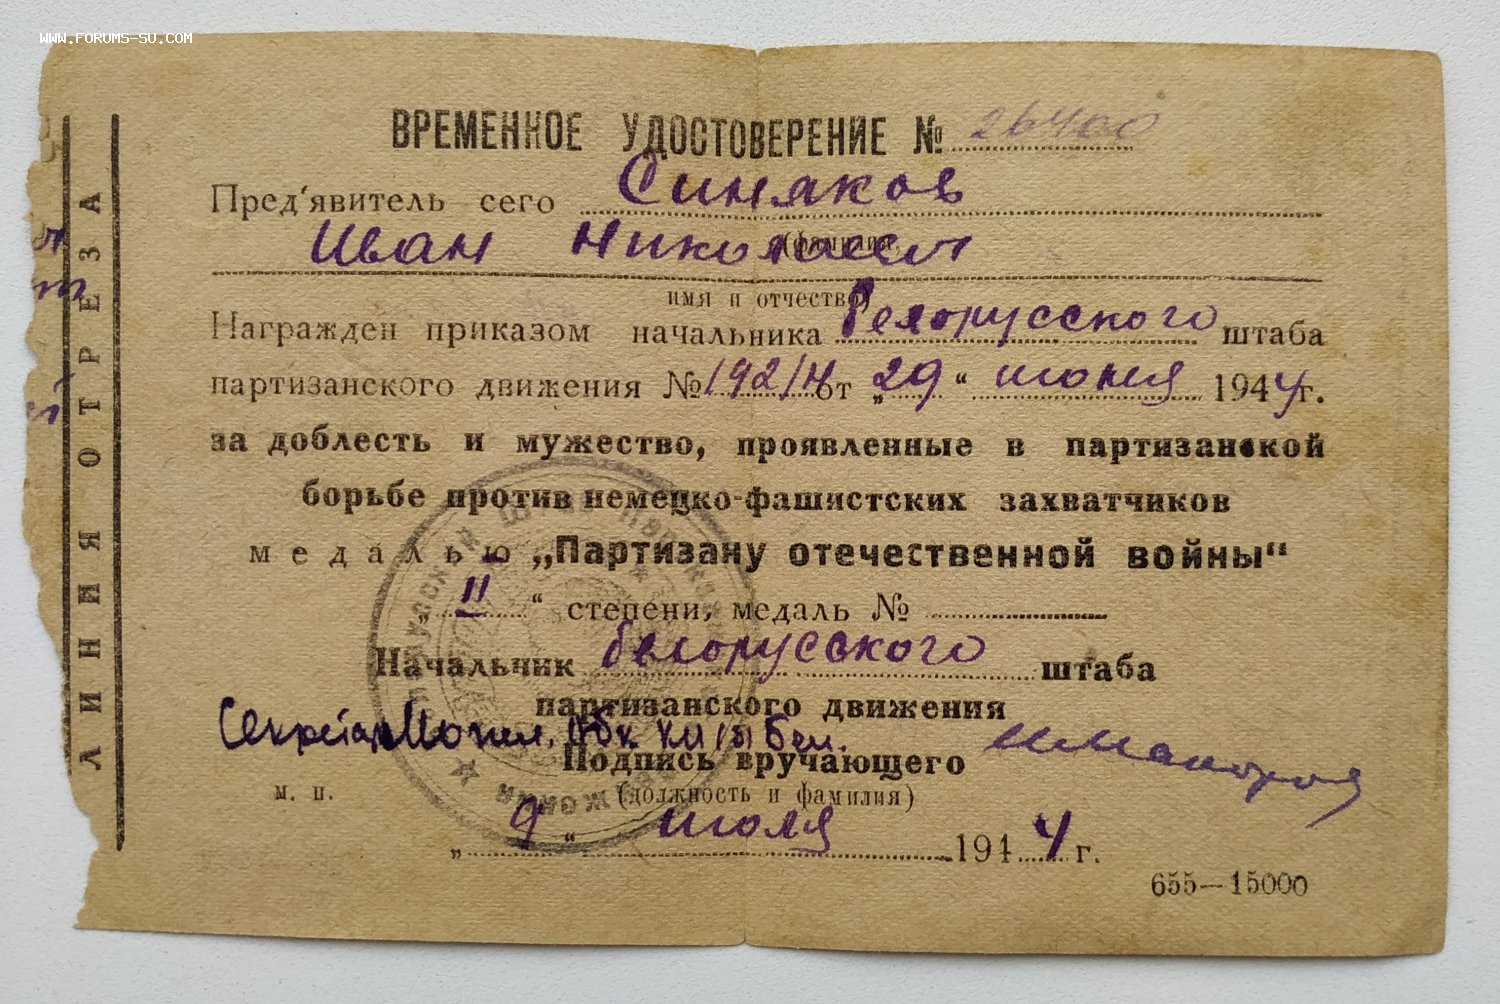 WWW.FORUMS-SU.COM
ЛИНИЯ ОТРЕЗА
ВРЕМЕННОЕ УДОСТОВЕРЕНИЕ № 26400
Пред'явитель сего Синяков
(фамилия,
Иван Николаев
имя и отчество)
Награжден приказом начальника Белорусского штаба
партизанского движения № 192/н от „29“ июня 1944 г.
за доблесть и мужество, проявленные в партизанской
борьбе против немецко-фашистских захватчиков
медалью „Партизану отечественной войны“
„II“ степени, медаль № —
Начальник белорусского штаба
партизанского движения
Секретар Могил. Обк КП(б)Бел.
Подпись вручающего
м. п. (должность и фамилия)
„9“ июля 1944 г.
655—15000